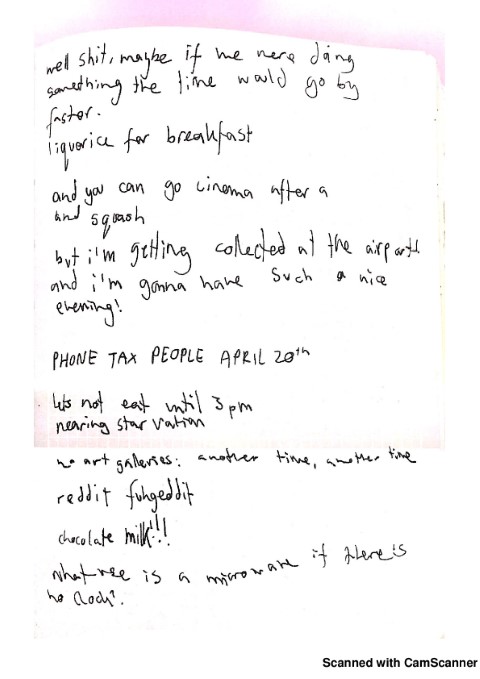 well shit, maybe if we were doing
something the time would go by
faster.
liquorice for breakfast
and you can go cinema after a
and squash
but i'm getting collected at the airport
and i'm gonna have such a nice
evening!
PHONE TAX PEOPLE APRIL 20th
lets not eat until 3pm
nearing starvation
no art galleries: another time, another time
reddit fuhgeddit
chocolate milk!!!
what use is a microwave if there is
no clock?
Scanned with CamScanner